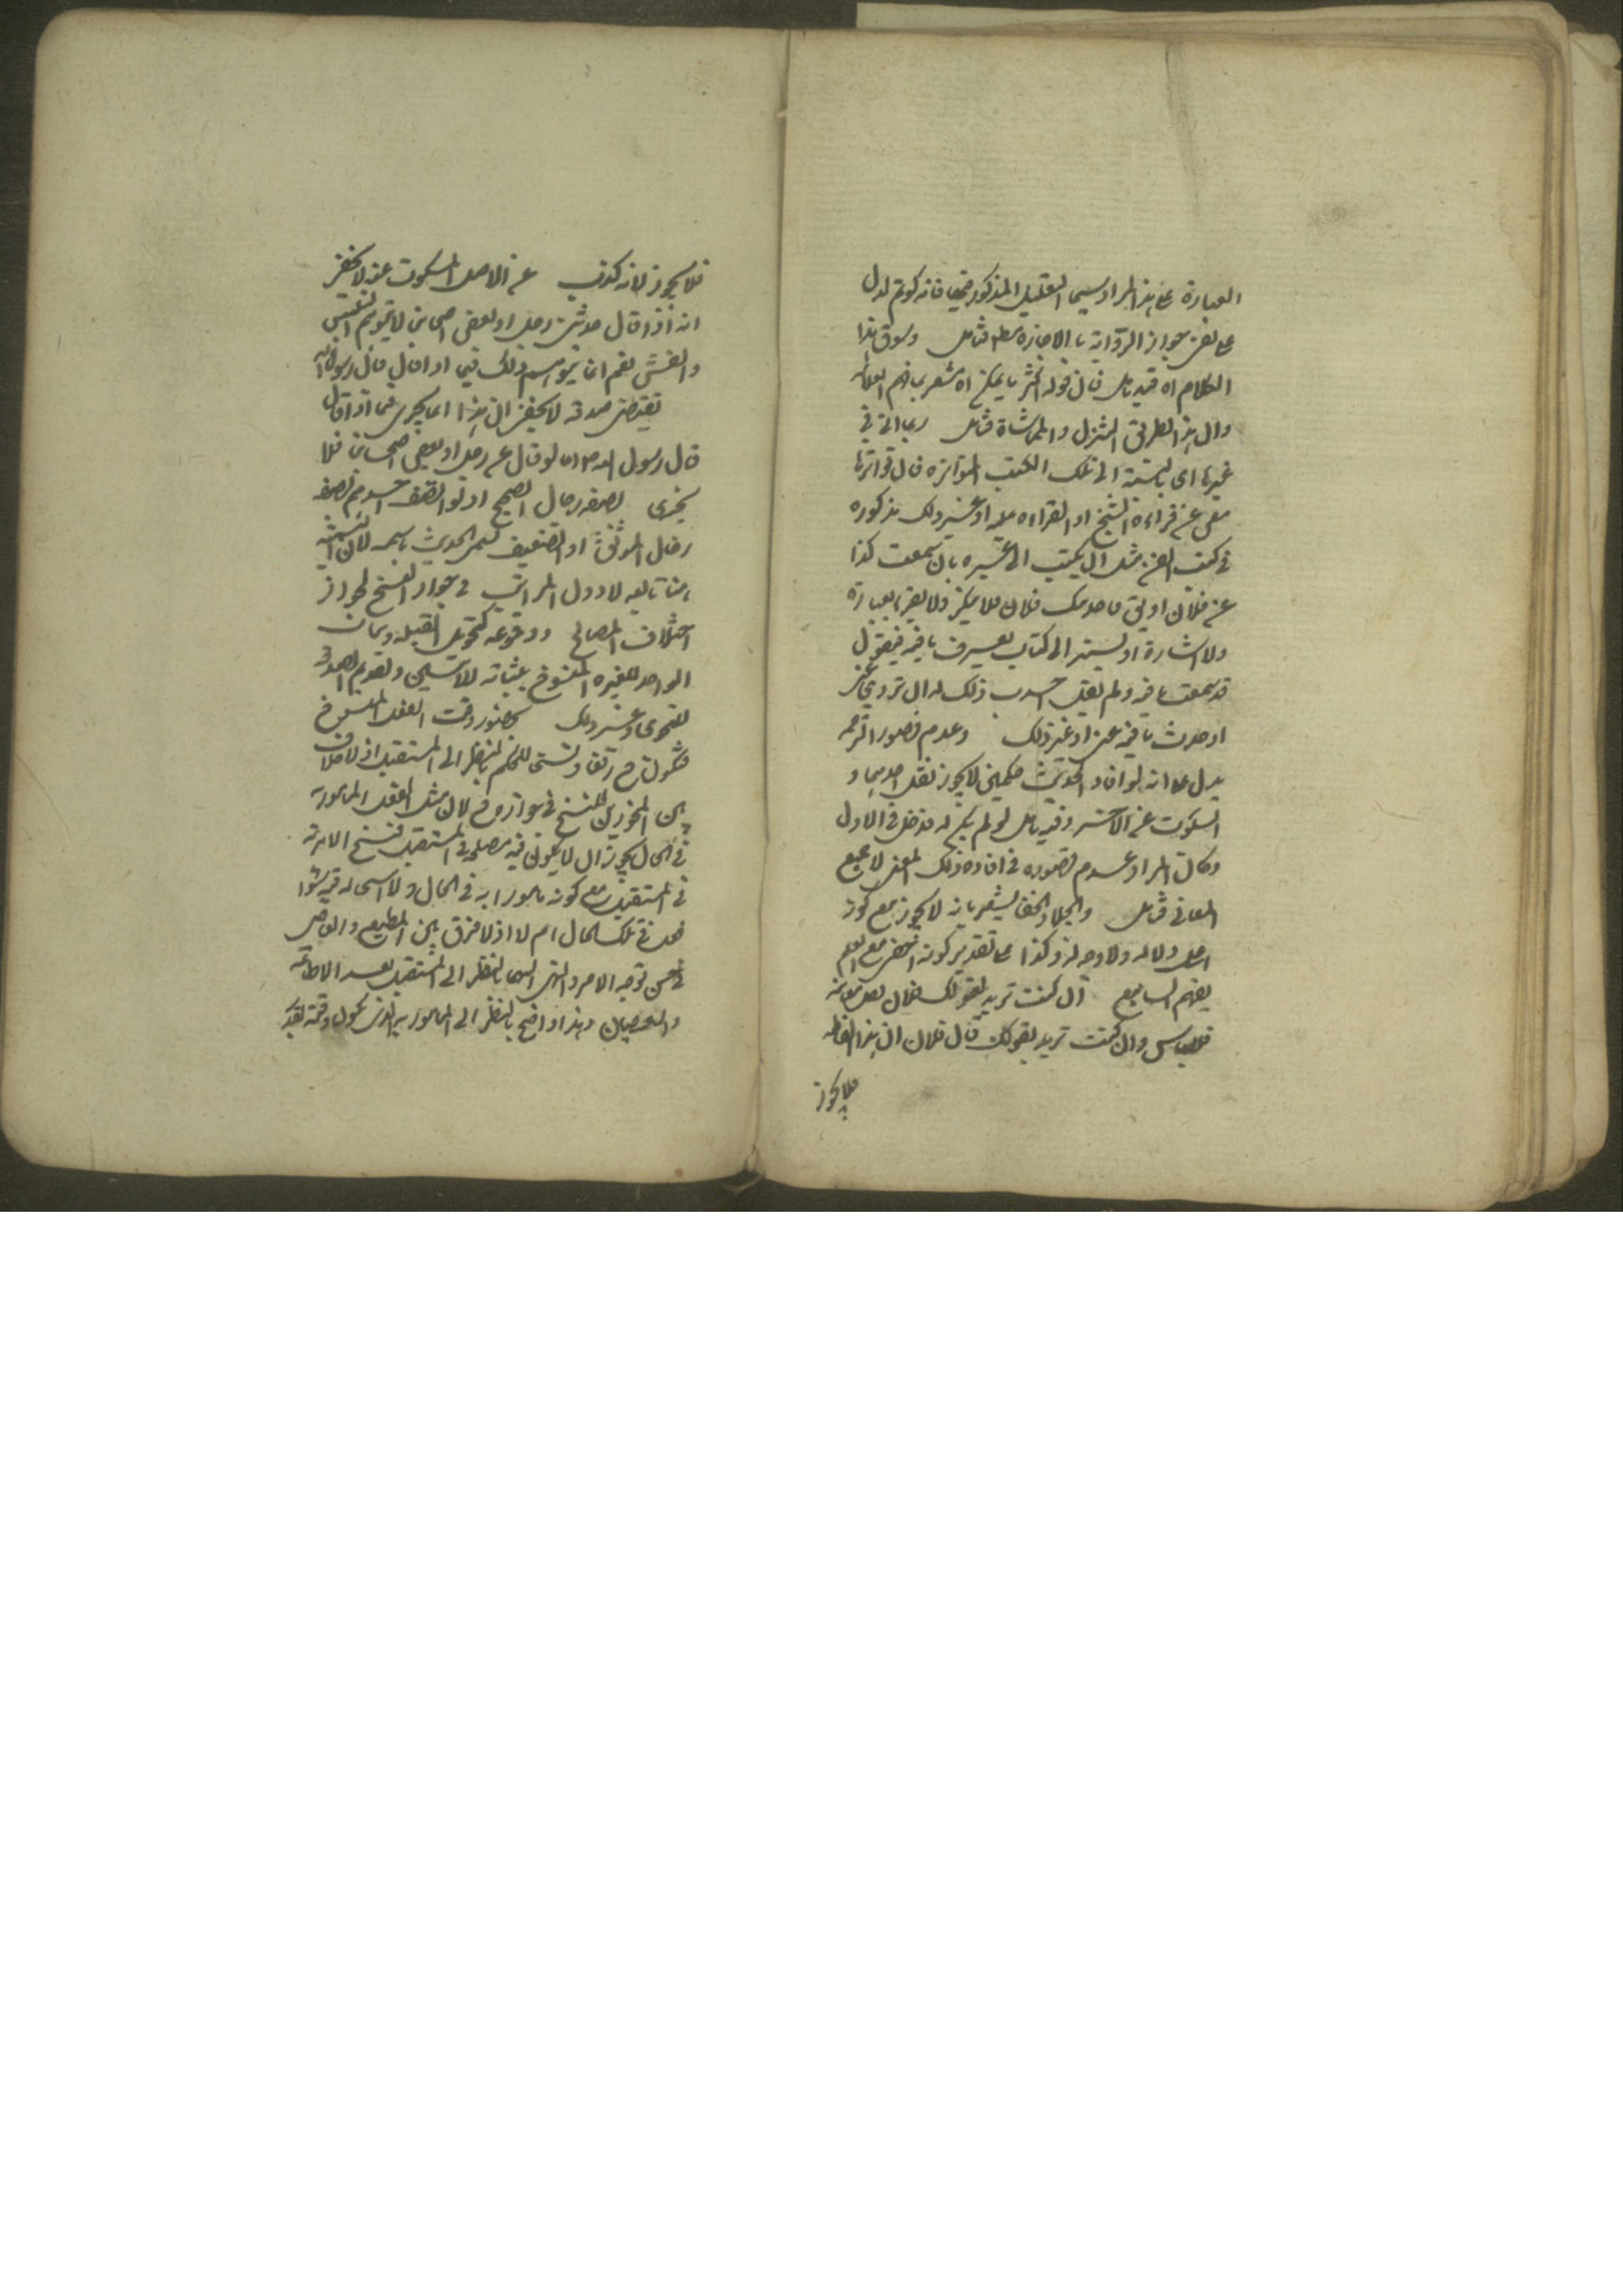 العبارة على هذا المراد سيما التعليل المذكور فيها فانه كونه لدل
على نفى جواز الرواية بالاجازة مط فتامل وسوق هذا
الكلام اه فيه تامل فان قوله اكثر ما يمكن اه يشعر بما فهم العلامة
وان هذا بطريق التنزل والمماشاة فتامل ربما اتى فى
غيرها اى بالنسبة الى تلك الكتب المتواترة فان تواترها
مغن عن قراءة الشيخ او القراءة عليه او غير ذلك مذكوره
فى كتب الفن مثل ان يكتب الى غيره بان سمعت كذا
عن فلان او يقول ما حدثك فلان فلا ينكر ولا يقر بعبارة
ولا اشارة او يشير الى كتاب يعرف ما فيه فيقول
قد سمعت ما فيه ولم يقل حدث ذلك له ان تروى عنى
او حدث ما فيه عنى او غير ذلك وعدم قصور الترجمه
يدل على انه لو افاد الحديث حكمين لا يجوز نقل احدهما و
السكوت عن الآخر وفيه تامل لو لم يكن له مدخل فى الاول
وكان المراد عدم قصوره فى افادة ذلك المعنى لا جميع
المعانى فتامل والجلاء والخفا يشعر بانه لا يجوز مع كونه
اجلى دلاله ولا وجه له وكذا على تقدير كونه اخفى مع العلم
بفهم السامع ان كنت تريد بقولك قال فلان بعض معانيه
فلا باس وان كنت تريد بقولك قال فلان ان هذا الفاظه
فلا يجوز
فلا يجوز لانه كذب عن الاصل المسكوت عنه لا يخفى
انه اذا قال حدثنى رجل او بعض اصحابى لا يتوهم التلبيس
والغش نعم انما يتوهم ذلك فيما اذا قال قال رسول الله
تقتضى صدقه لا يخفى ان هذا انما يجرى فيما اذا قال
قال رسول الله ص اما لو قال عن رجل او بعض اصحابنا فلا
يجرى لصفة رجال الصحيح او لو اتصف احدهم بصفة
رجال الموثق او الضعيف يسمى الحديث باسمه لان التسمية
انما تابعه لادون المراتب فى جواز النسخ لجواز
اختلاف المصالح ووقوعه كتحويل القبله وثبات
الواحد للعشره المنسوخ بثباته للاثنين وتقديم الصدقه
للنجوى وغير ذلك بحضور وقت الفعل المنسوخ
فيكون النسخ رفعا ونسخا للحكم بالنظر الى المستقبل اذ لا خلاف
بين المجوزين للنسخ فى جوازه ح لان مثل الفعل المامور به
فى الحال يجوز ان لا يكون فيه مصلحة فى المستقبل فنسخ الامر به
فى المستقبل مع كونه مامورا به فى الحال ولا استحاله فيه سواء
فعل فى تلك الحال ام لا اذ لا فرق بين المطيع والعاصى
فى حسن توجه الامر والنهى اليهما بالنظر الى المستقبل بعد الاطاعة
والعصيان وهذا واضح بالنظر الى المامور به الذى يكون وقته بقدر